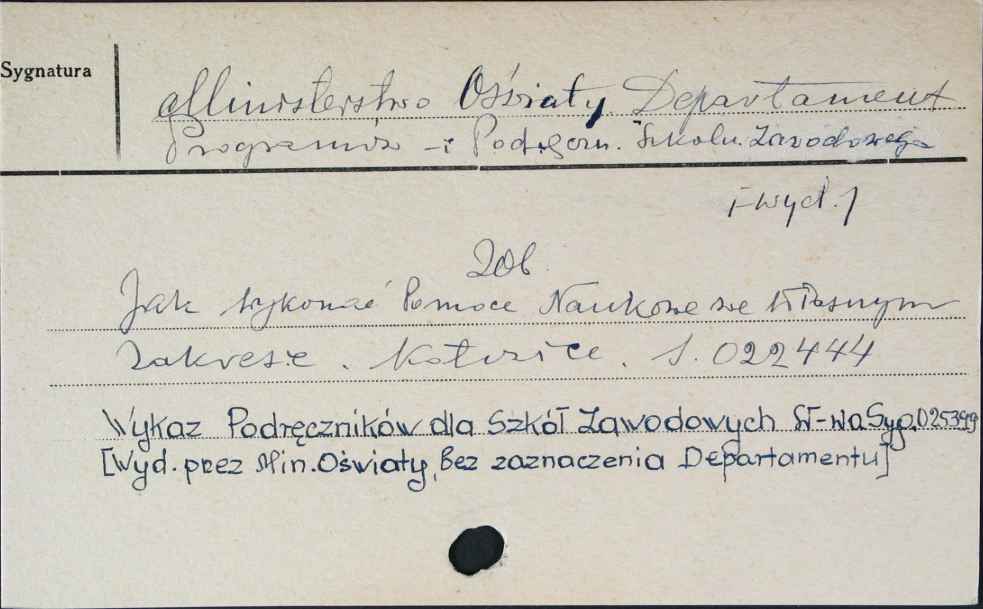 Sygnatura
Ministerstwo Oświaty. Departament
Programów i Podręczn. Szkoln. Zawodowego
i wyd. 1
Zob.
Jak wykonać Pomoce Naukowe we Własnym
Zakresie. Katowice. S. 022444
Wykaz Podręczników dla Szkół Zawodowych W-wa Syg. 025399
[Wyd. przez Min. Oświaty, Bez zaznaczenia Departamentu]